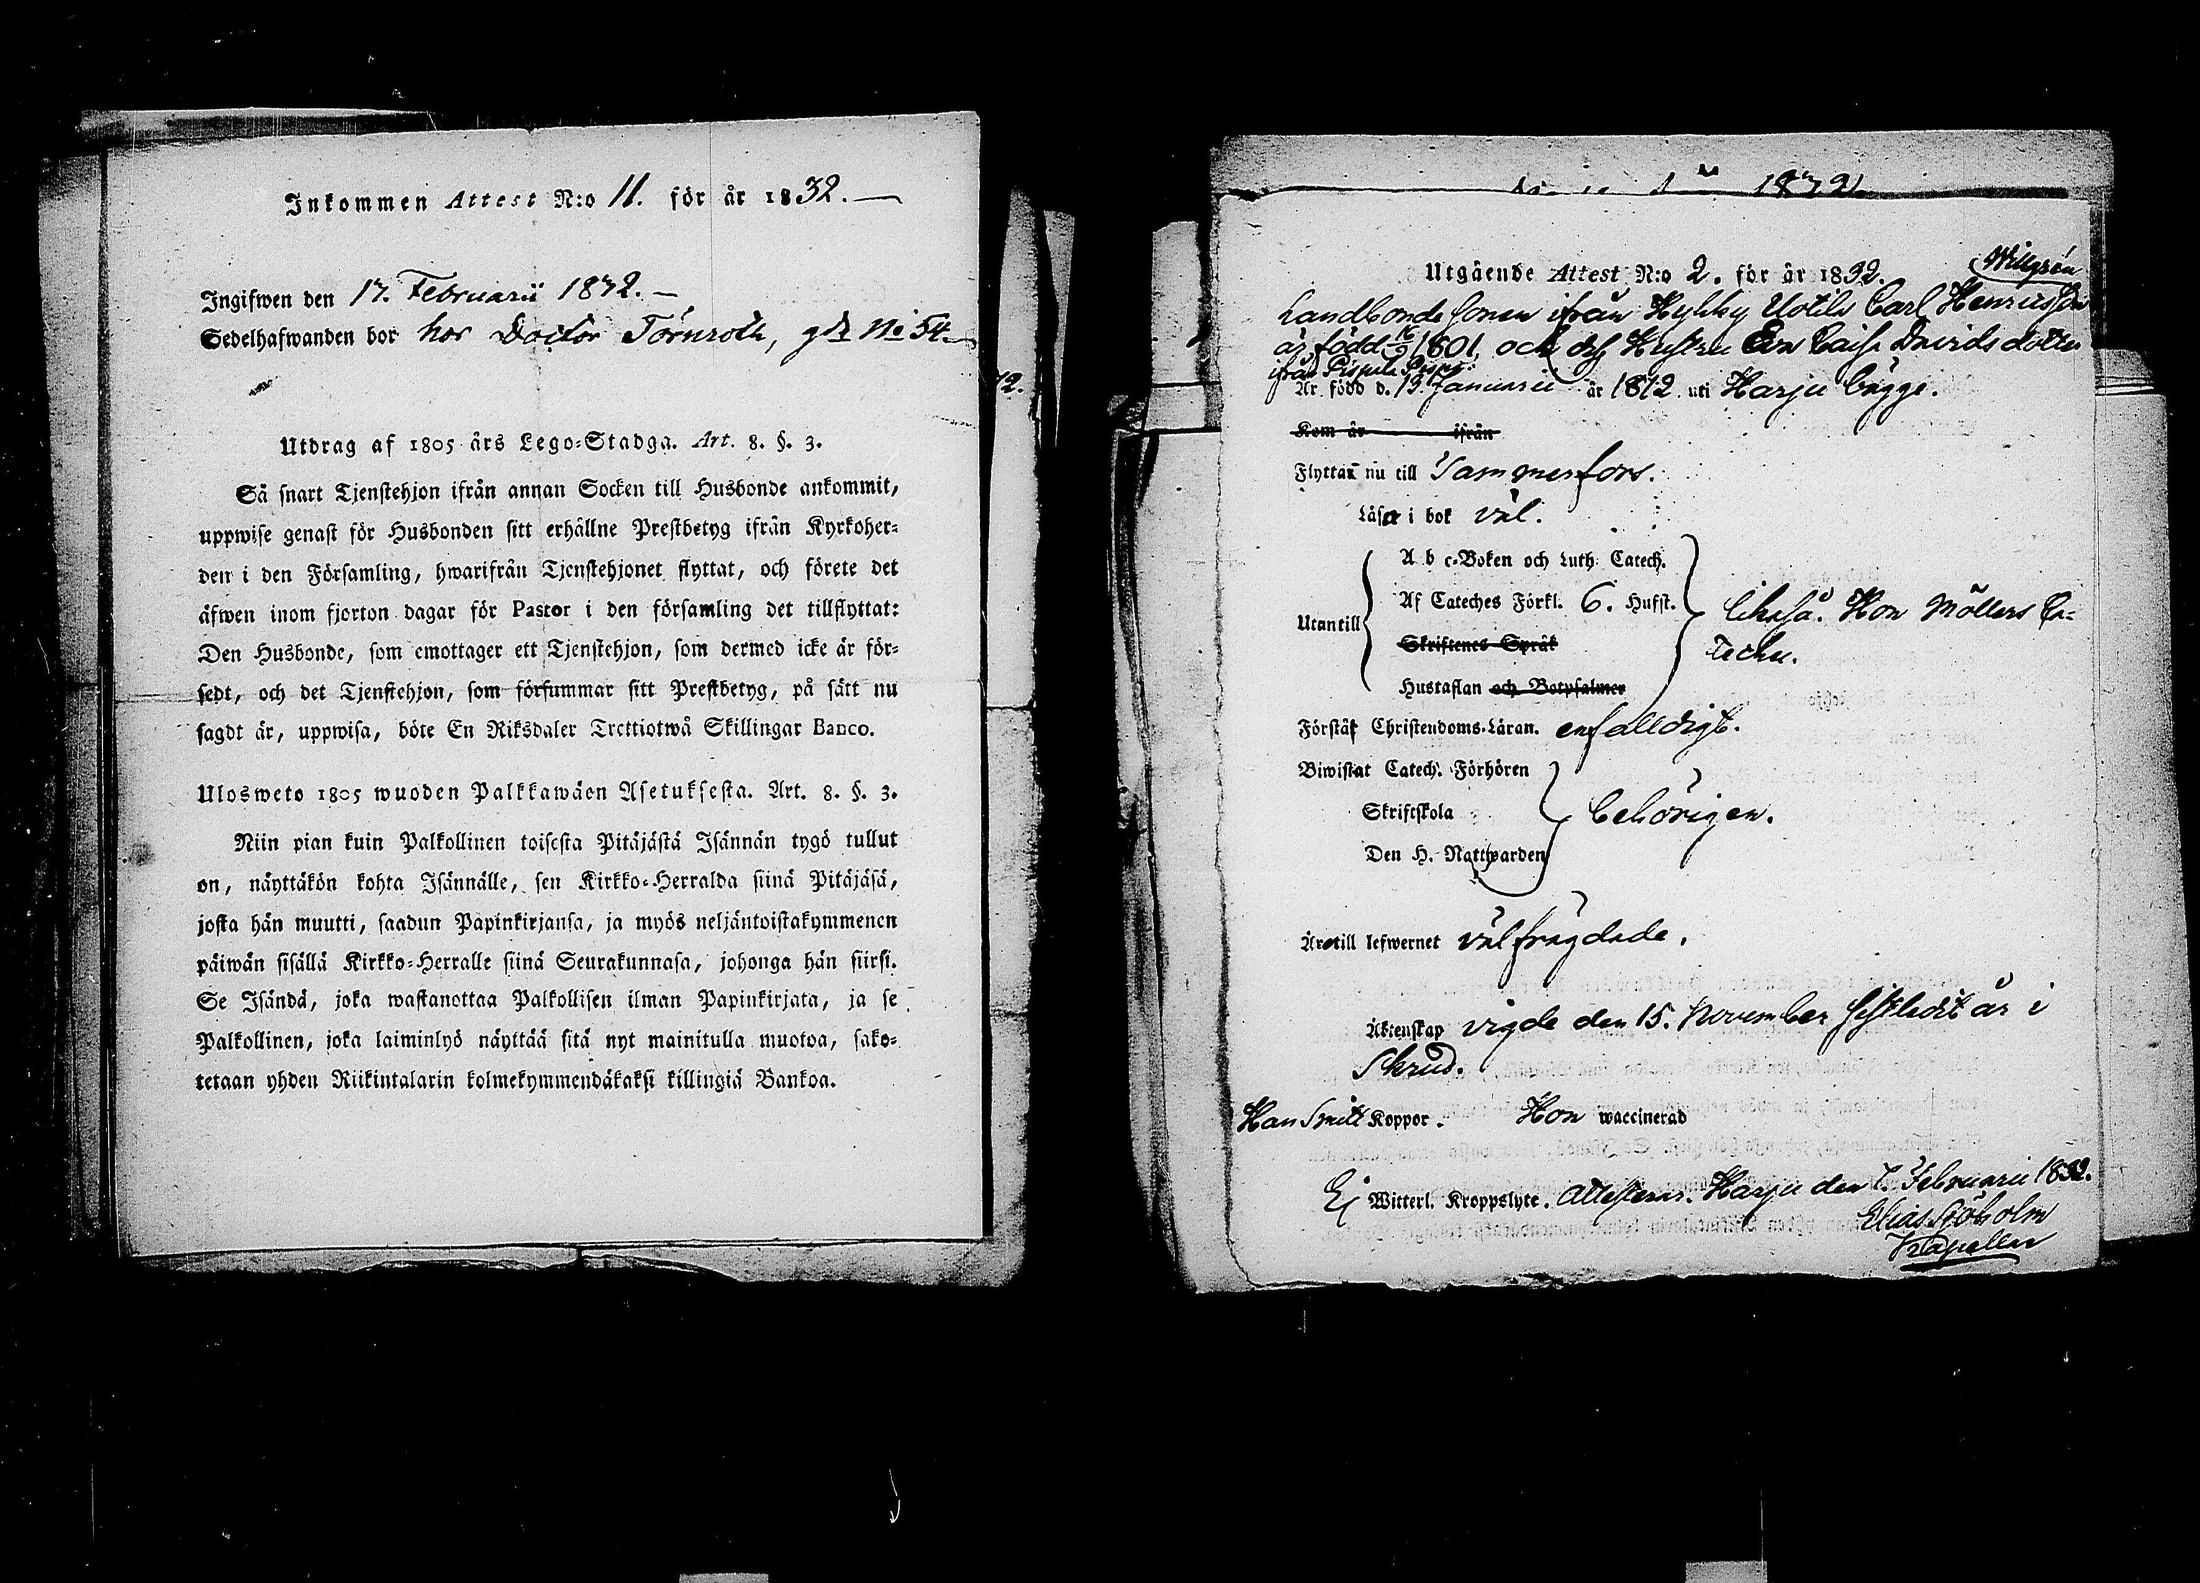 Inkommen Attest N:o 11. för år 1832.
Ingifwen den 17. Februarii 1832.
Sedelhafwanden bor hos Doctor Törnroth, gd N:o 54.
Utdrag af 1805 års Lego-Stadga. Art. 8. §. 3.
Så snart Tjenstehjon ifrån annan Socken till Husbonde ankommit,
uppwise genast för Husbonden sitt erhållne Prestbetyg ifrån Kyrkoher-
den i den Församling, hwarifrån Tjenstehjonet flyttat, och förete det
äfwen inom fjorton dagar för Pastor i den församling det tillflyttat:
Den Husbonde, som emottager ett Tjenstehjon, som dermed icke är för-
sedt, och det Tjenstehjon, som försummar sitt Prestbetyg, på sätt nu
sagdt är, uppwisa, böte En Riksdaler Trettiotwå Skillingar Banco.
Ulosweto 1805 wuoden Palkkawäen Asetuksesta. Art. 8. §. 3.
Niin pian kuin Palkollinen toisesta Pitäjästä Isännän tygö tullut
on, näyttäkön kohta Isännälle, sen Kirkko-Herralda siinä Pitäjäsä,
josta hän muutti, saadun Papinkirjansa, ja myös neljäntoistakymmenen
päiwän sisällä Kirkko-Herralle siinä Seurakunnasa, johonga hän siirsi.
Se Isändä, joka wastanottaa Palkollisen ilman Papinkirjata, ja se
Palkollinen, joka laiminlyö näyttää sitä nyt mainitulla muotoa, sako-
tetaan yhden Riikintalarin kolmekymmendäkaksi killingiä Bankoa.
12.
1832
Utgående Attest N:o 2. för år 1832.
Willgrén
Landbonde sonen ifrån Hyhky Uotila Carl Henricsson
är född 16/9 1801, och dess Hustru Eva Caisa Davidsdotter
ifrån Pispala
Är född d. 19. Januarii år 1812 uti Harju bägge.
Kom år ifrån
Flyttar nu till Tammerfors.
Läsa i bok väl.
A b c-Boken och Luth. Catech.
Utantill Af Cateches Förkl. 6. Hufst. likaså. Hon Möllers Ca-
Skriftenes Språk techis.
Hustaflan och Botpsalmer
Förstår Christendoms-Läran. enfalldigt.
Biwistat Catech. Förhören
Skriftskola behörigen.
Den H. Nattwarden
Äro till lefwernet välfrägdade.
Äktenskap vigde den 15. November sistledit år i
Skrud.
Han Smitt Koppor. Hon waccinerad
Ej Witterl. Kroppslyte. Attesterar. Harju den 7. Februarii 1832.
Elias Sjöholm
Kapellan